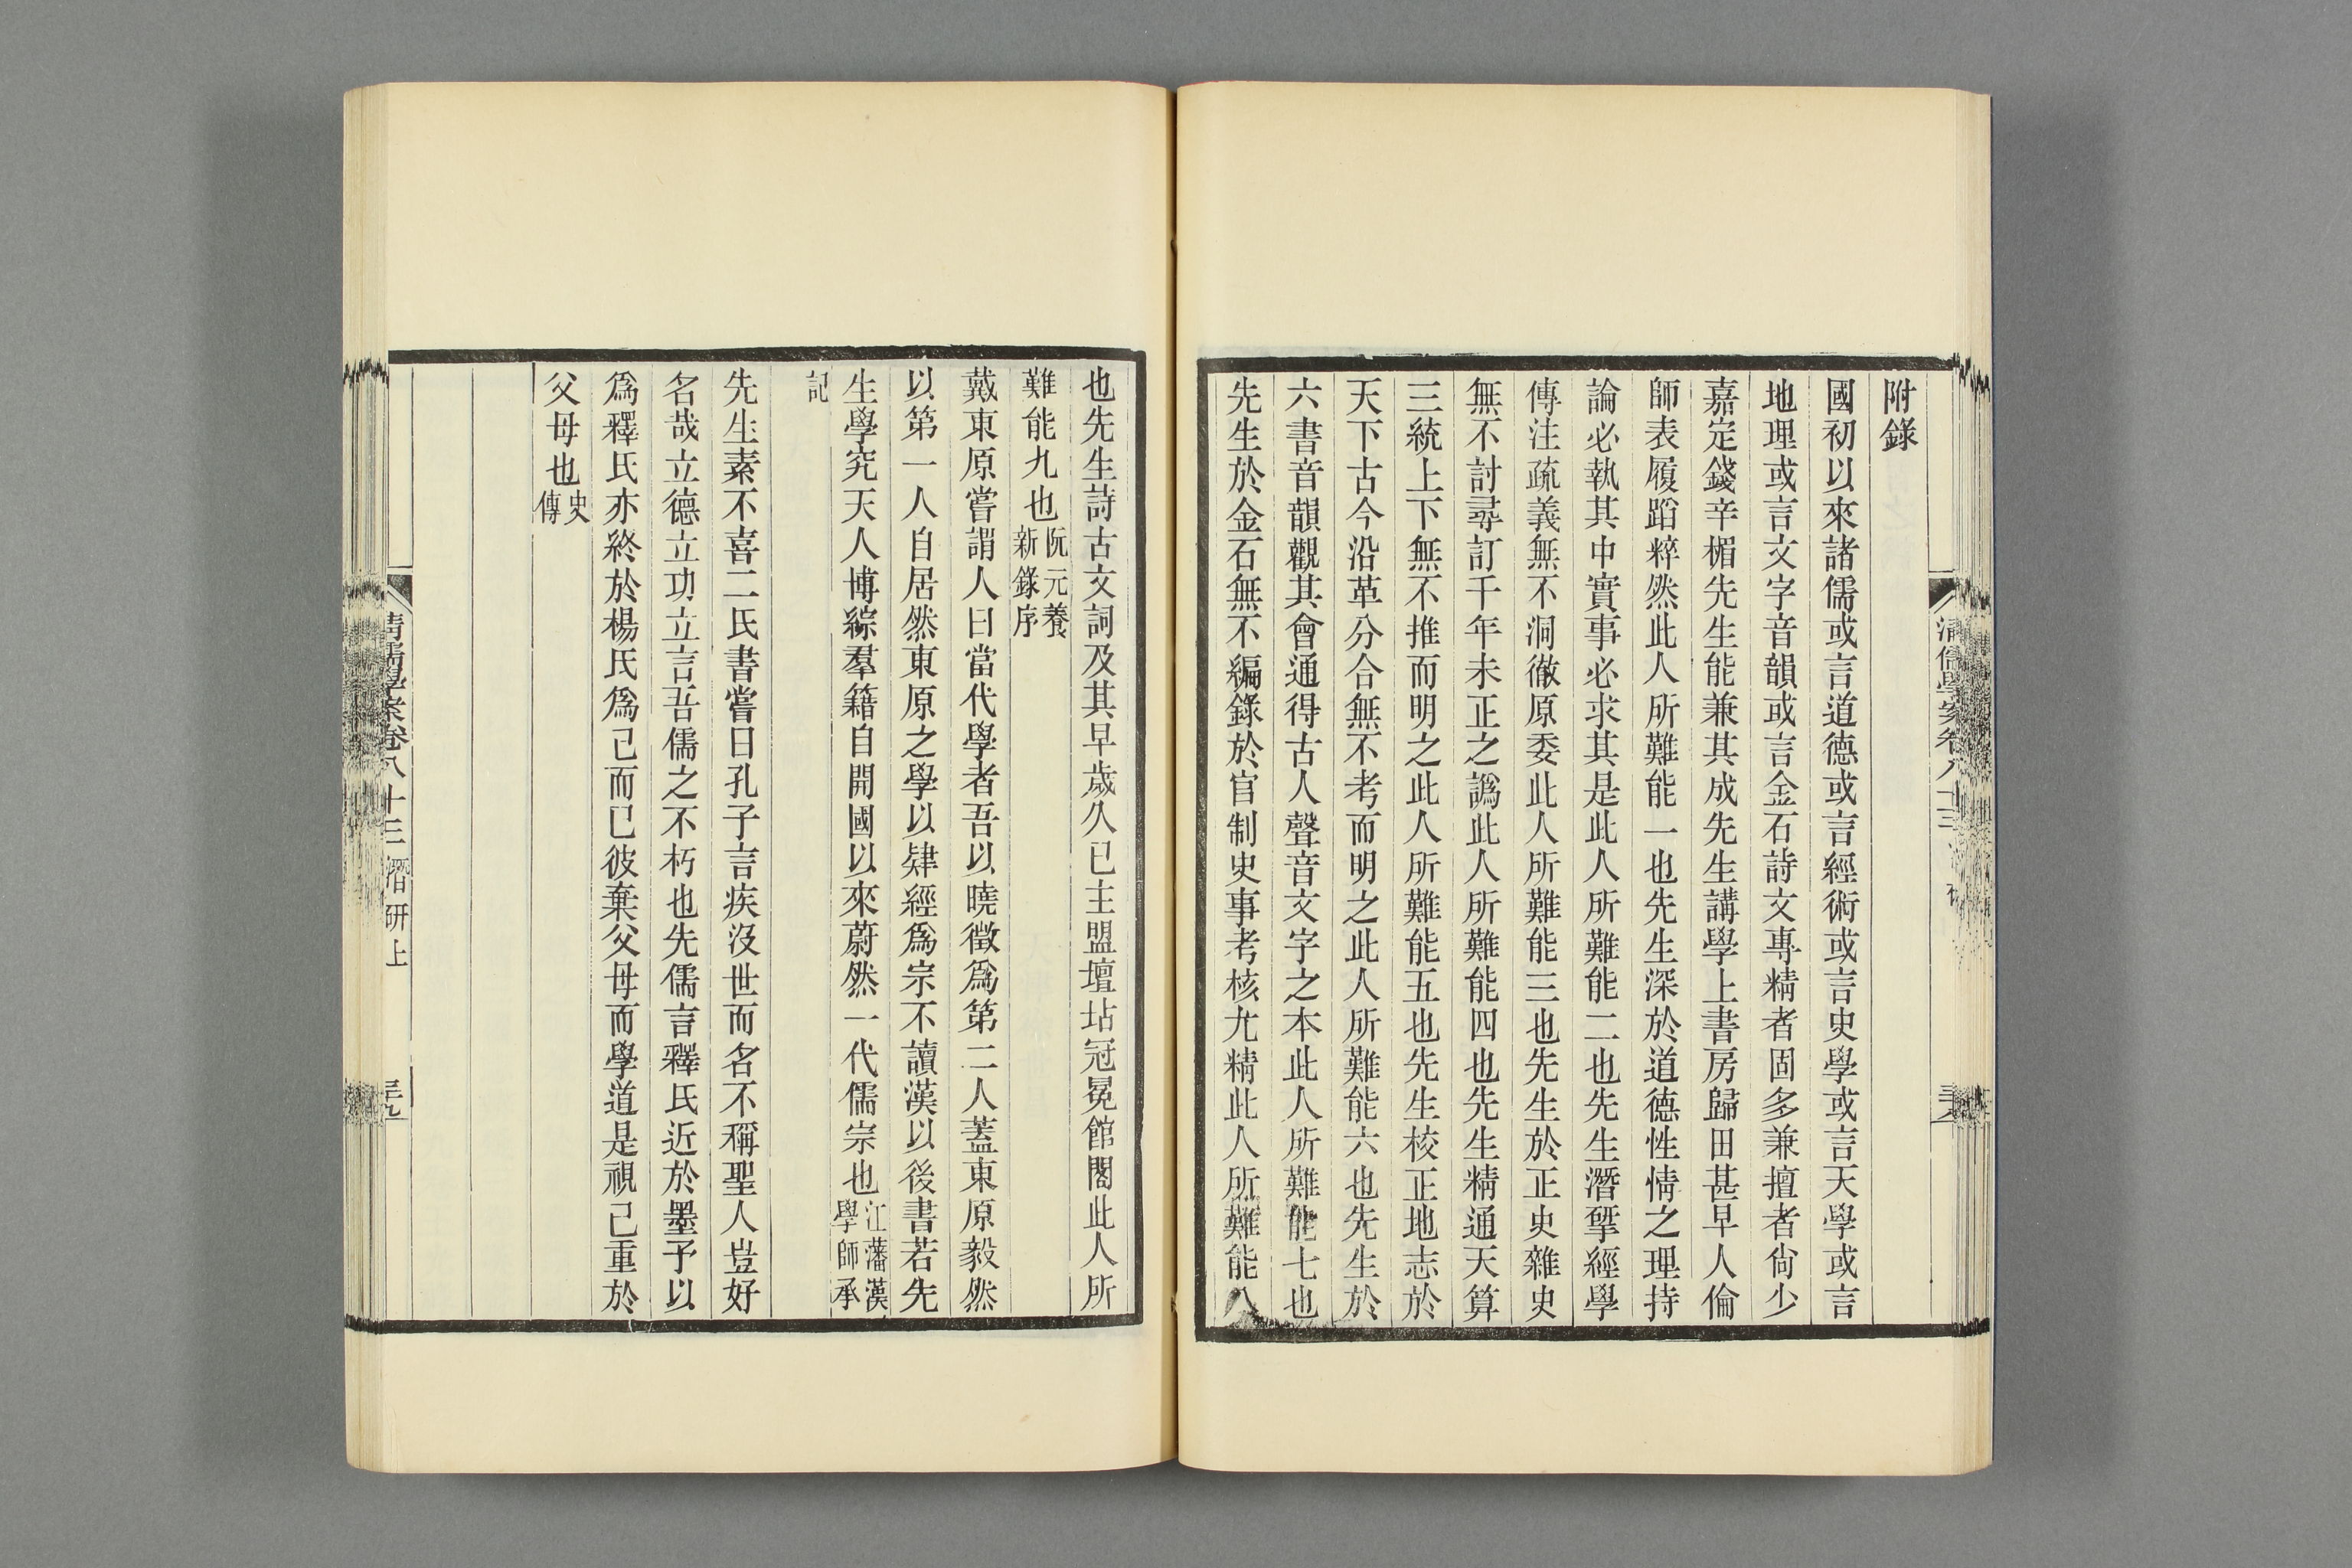 附錄
國初以來諸儒或言道德或言經術或言史學或言天學或言
地理或言文字音韻或言金石詩文專精者固多兼擅者尙少
嘉定錢辛楣先生能兼其成先生講學上書房歸田甚早人倫
師表履蹈粹然此人所難能一也先生深於道德性情之理持
論必執其中實事必求其是此人所難能二也先生潛揅經學
傳注疏義無不洞徹原委此人所難能三也先生於正史雜史
無不討尋訂千年未正之譌此人所難能四也先生精通天算
三統上下無不推而明之此人所難能五也先生校正地志於
天下古今沿革分合無不考而明之此人所難能六也先生於
六書音韻觀其會通得古人聲音文字之本此人所難能七也
先生於金石無不編錄於官制史事考核尤精此人所難能八
也先生詩古文詞及其早歲久已主盟壇坫冠冕館閣此人所
難能九也阮元養新錄序
戴東原嘗謂人曰當代學者吾以曉徵爲第二人蓋東原毅然
以第一人自居然東原之學以肄經爲宗不讀漢以後書若先
生學究天人博綜羣籍自開國以來蔚然一代儒宗也江藩漢學師承
記
先生素不喜二氏書嘗曰孔子言疾沒世而名不稱聖人豈好
名哉立德立功立言吾儒之不朽也先儒言釋氏近於墨予以
爲釋氏亦終於楊氏爲己而已彼棄父母而學道是視己重於
父母也史傳
清儒學案卷八十三 潛研上
三九